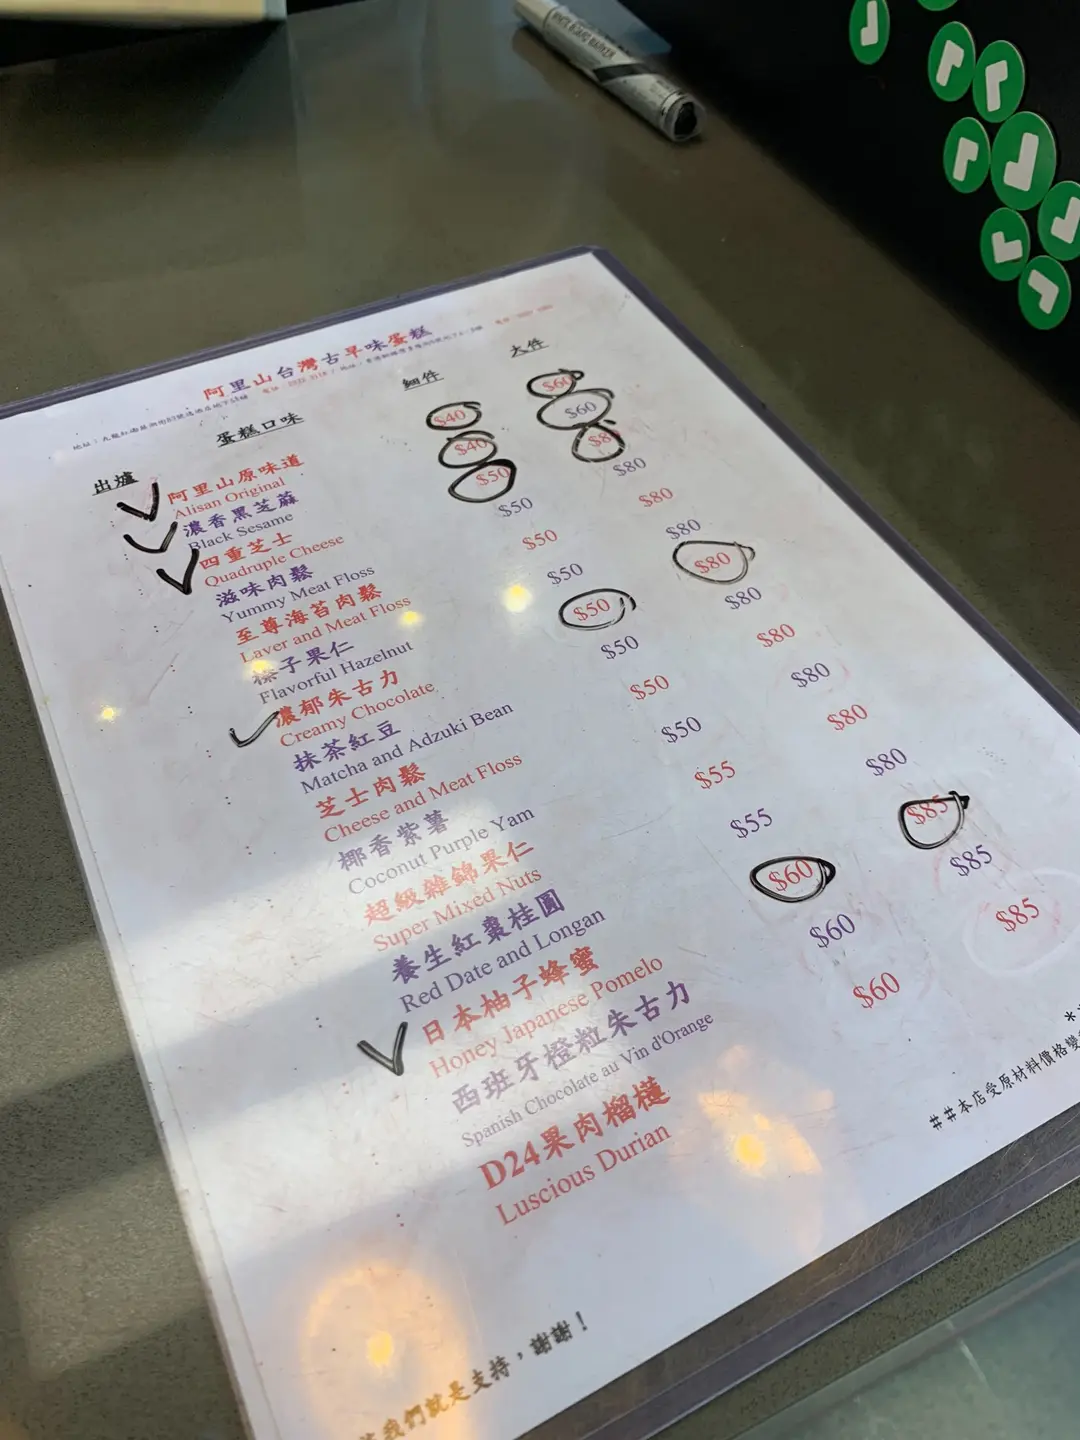 WHITE BOARD MARKER
阿里山台灣古早味蛋糕
出爐 蛋糕口味 細件 大件
阿里山原味道 $40 $60
Alisan Original
濃香黑芝蔴 $40 $60
Black Sesame
四重芝士 $50 $80
Quadruple Cheese
滋味肉鬆 $50 $80
Yummy Meat Floss
至尊海苔肉鬆 $50 $80
Laver and Meat Floss
榛子果仁 $50 $80
Flavorful Hazelnut
濃郁朱古力 $50 $80
Creamy Chocolate
抹茶紅豆 $50 $80
Matcha and Adzuki Bean
芝士肉鬆 $50 $80
Cheese and Meat Floss
椰香紫薯 $50 $80
Coconut Purple Yam
超級雜錦果仁 $55 $80
Super Mixed Nuts
養生紅棗桂圓 $55 $80
Red Date and Longan
日本柚子蜂蜜 $60 $85
Honey Japanese Pomelo
西班牙橙粒朱古力 $60 $85
Spanish Chocolate au Vin d'Orange
D24果肉榴槤 $60 $85
Luscious Durian
##本店受原材料價格變
我們就是支持，謝謝！